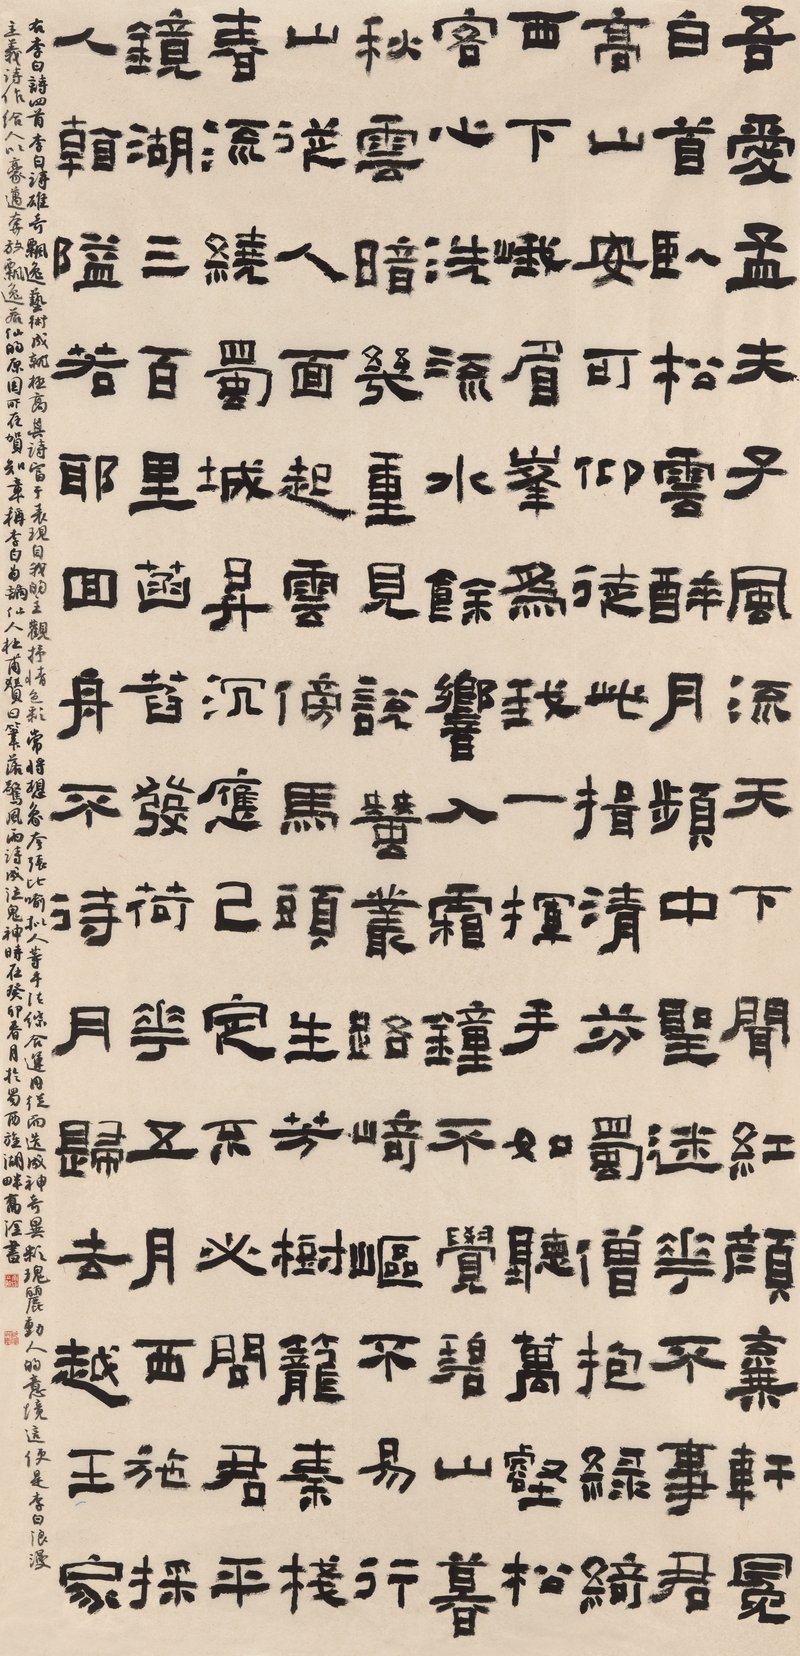 吾愛孟夫子風流天下聞紅顔棄軒冕
白首卧松雲醉月頻中聖迷花不事君
高山安可仰徒此揖清芬蜀僧抱綠綺
西下峨眉峯為我一揮手如聽萬壑松
客心洗流水餘響入霜鐘不覺碧山暮
秋雲暗幾重見說蠶叢路崎嶇不易行
山從人面起雲傍馬頭生芳樹籠秦棧
春流繞蜀城昇沉應已定不必問君平
鏡湖三百里菡萏發荷花五月西施採
人看隘若耶回舟不待月歸去越王家
右李白詩四首李白詩雄奇飄逸藝術成就極高其詩富于表現自我的主觀抒情色彩常將想象夸張比喻拟人等手法綜合運用從而造成神奇異彩瑰麗動人的意境這便是李白浪漫
主義詩作給人以豪邁奔放飄逸若仙的原因所在賀知章稱李白為謫仙人杜甫贊曰筆落驚風雨詩成泣鬼神時在癸卯春月於蜀西旌湖畔高書